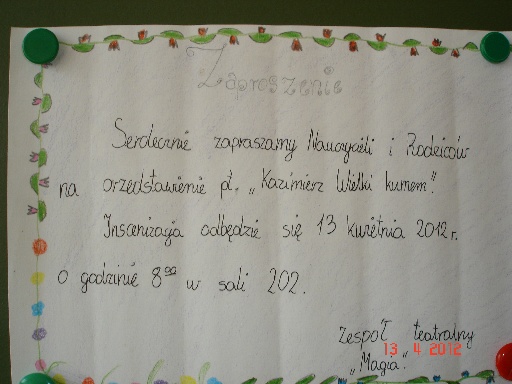 Zaproszenie
Serdecznie zapraszamy Nauczycieli i Rodziców
na przedstawienie pt. „Kazimierz Wielki kumem".
Inscenizacja odbędzie się 13 kwietnia 2012 r.
o godzinie 8⁰⁰ w sali 202.
Zespół teatralny
„Magia".
13 4 2012